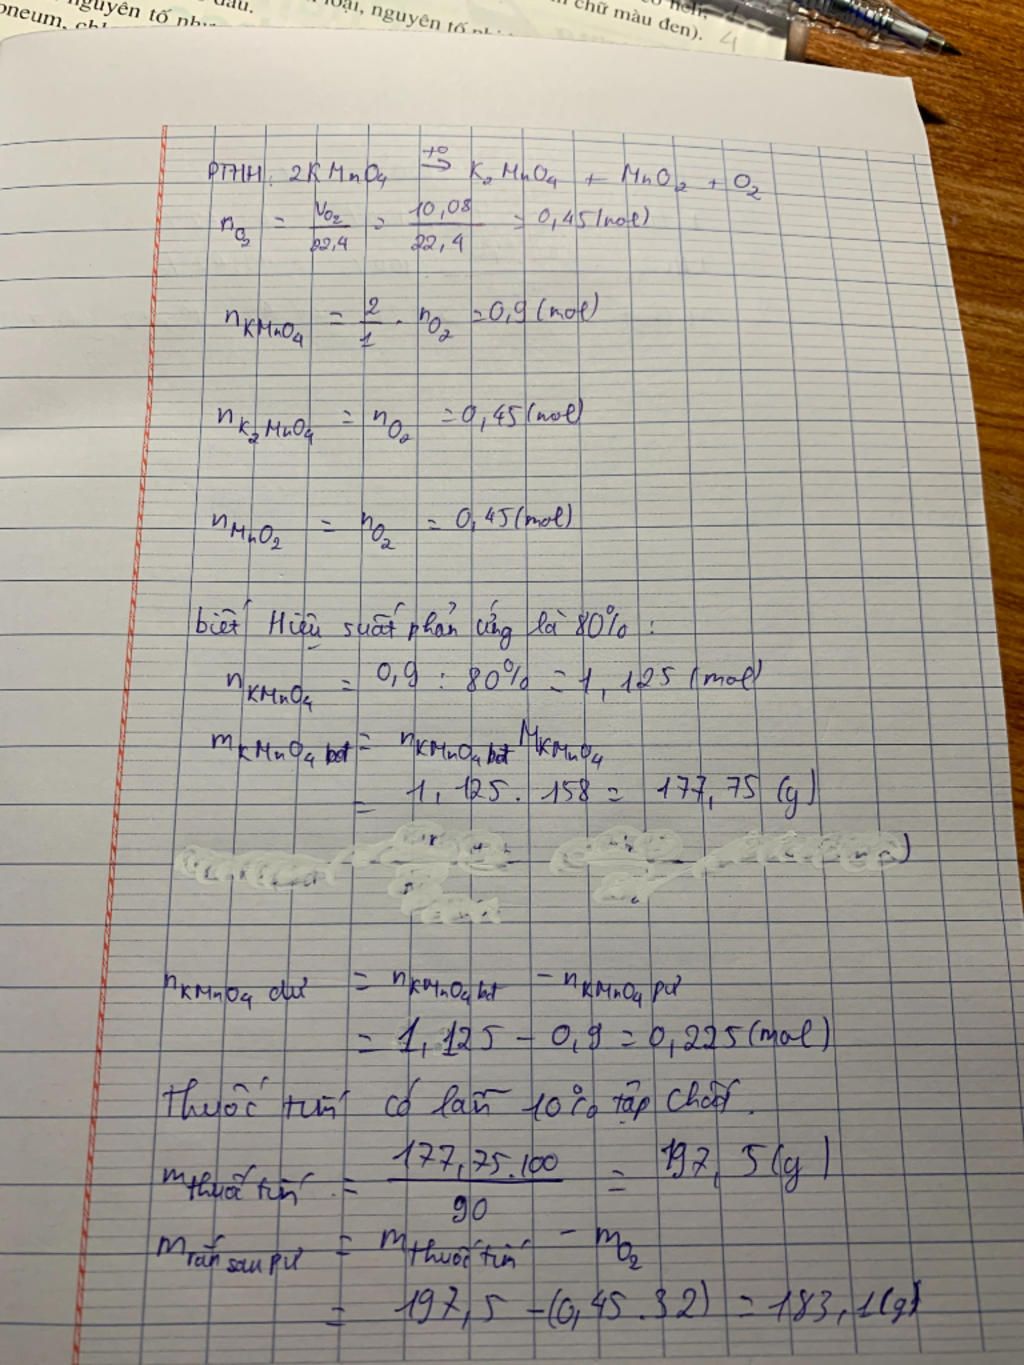 nguyên tố như
loại, nguyên tố
chữ màu đen). 4
PTHH: 2KMnO₄ →(t°) K₂MnO₄ + MnO₂ + O₂
n_O₂ = V_O₂/22,4 = 10,08/22,4 = 0,45(mol)
n_KMnO₄ = 2/1 . n_O₂ = 0,9 (mol)
n_K₂MnO₄ = n_O₂ = 0,45(mol)
n_MnO₂ = n_O₂ = 0,45(mol)
biết Hiệu suất phản ứng là 80% :
n_KMnO₄ = 0,9 : 80% = 1,125 (mol)
m_KMnO₄ bđ = n_KMnO₄ bđ M_KMnO₄
= 1,125 . 158 = 177,75 (g)
n_KMnO₄ dư = n_KMnO₄ bđ - n_KMnO₄ pư
= 1,125 - 0,9 = 0,225(mol)
Thuốc tím có lẫn 10% tạp chất.
m_thuốc tím = 177,75.100/90 = 197,5(g)
m_rắn sau pư = m_thuốc tím - m_O₂
= 197,5 - (0,45.32) = 183,1(g)